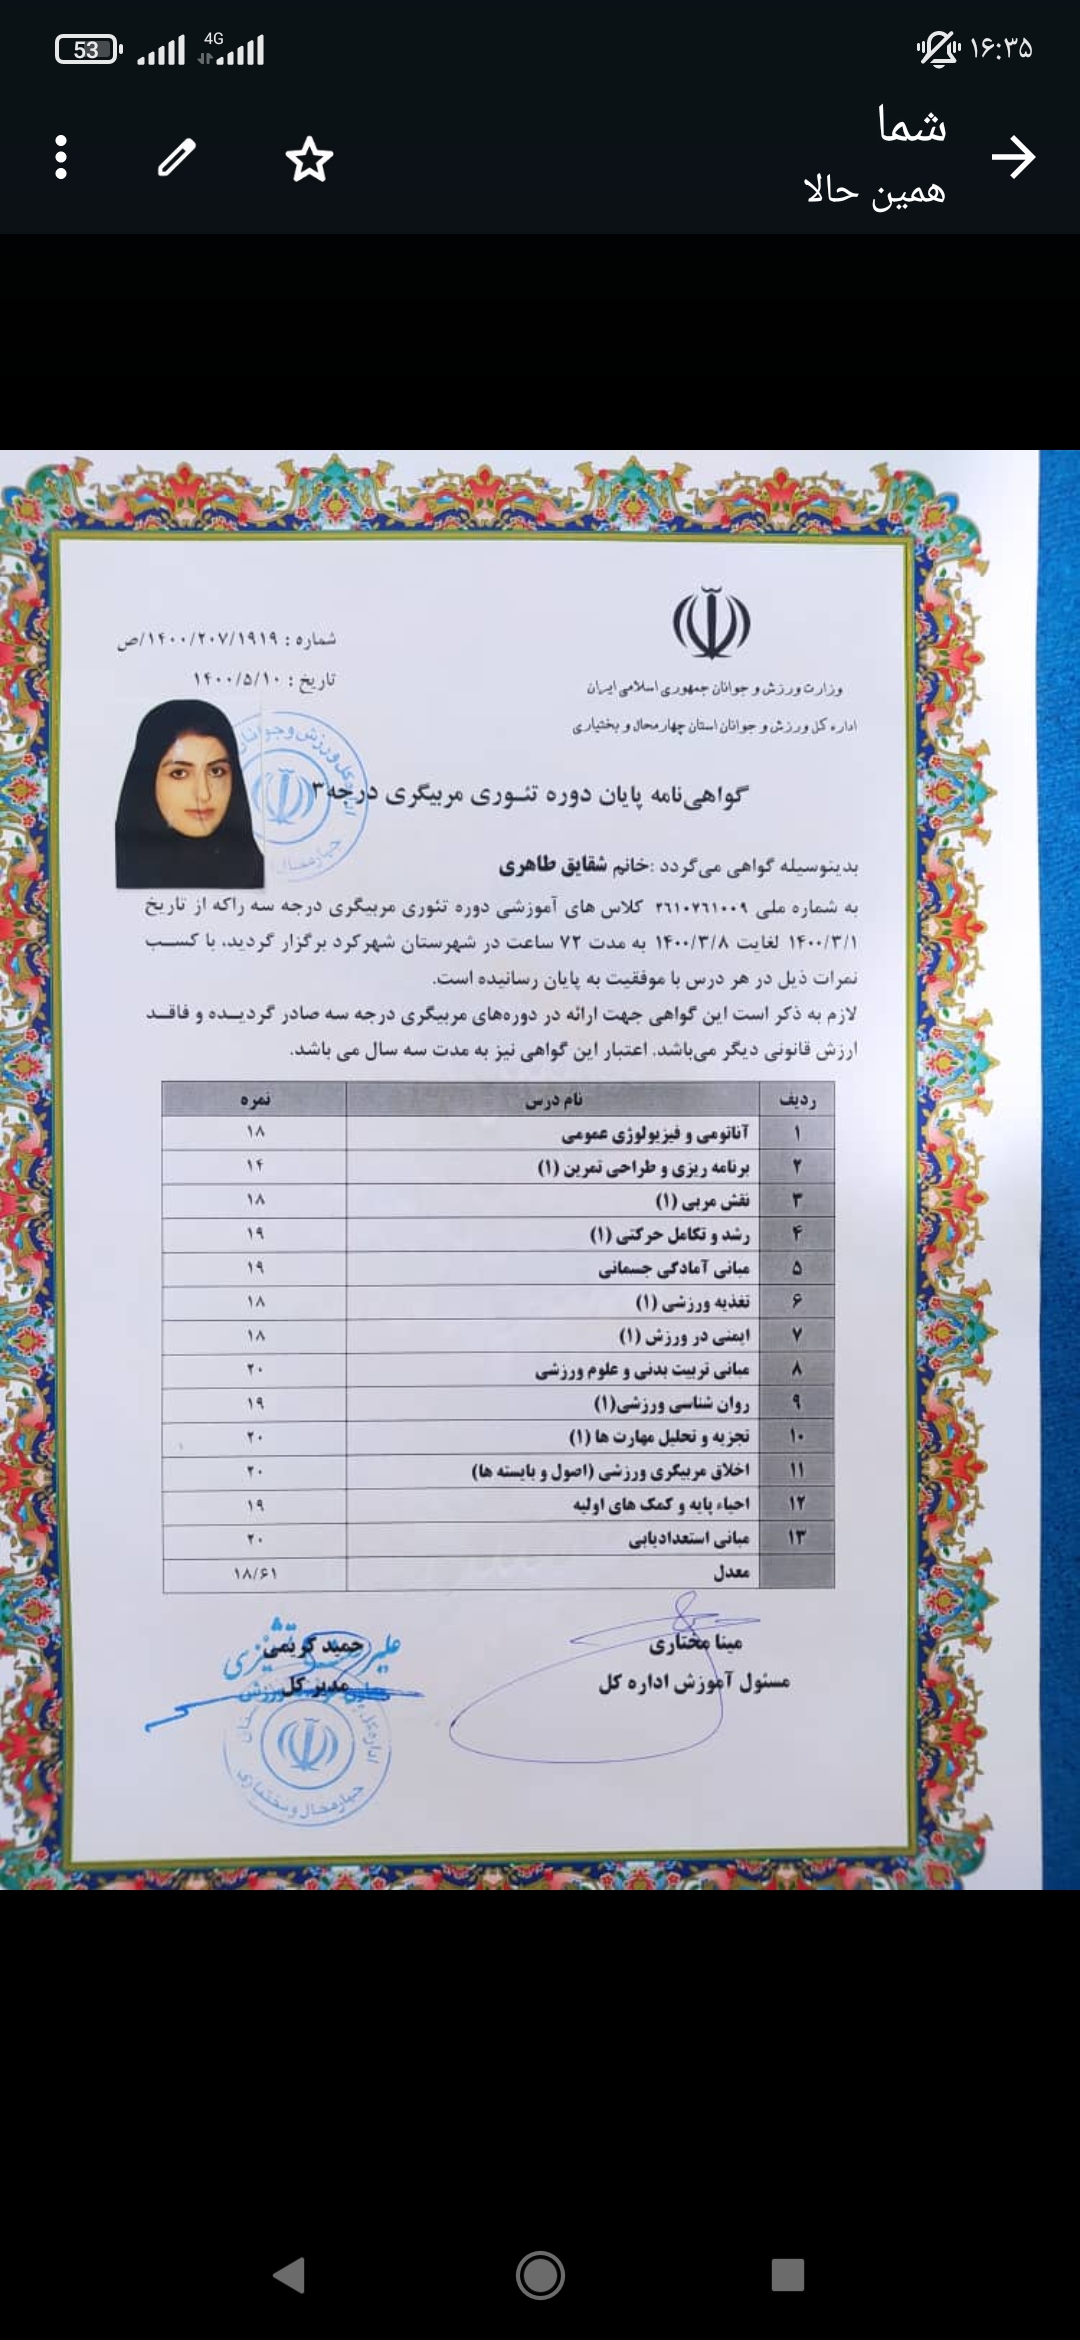 53 4G ۱۶:۳۵
شما
همین حالا
شماره : ۱۴۰۰/۲۰۷/۱۹۱۹/ص
تاریخ : ۱۴۰۰/۵/۱۰
وزارت ورزش و جوانان جمهوری اسلامی ایران
اداره کل ورزش و جوانان استان چهارمحال و بختیاری
گواهی‌نامه پایان دوره تئوری مربیگری درجه۳
بدینوسیله گواهی می‌گردد :خانم شقایق طاهری
به شماره ملی ۲۶۱۰۷۶۱۰۰۹ کلاس های آموزشی دوره تئوری مربیگری درجه سه راکه از تاریخ
۱۴۰۰/۳/۱ لغایت ۱۴۰۰/۳/۸ به مدت ۷۲ ساعت در شهرستان شهرکرد برگزار گردید، با کسب
نمرات ذیل در هر درس با موفقیت به پایان رسانیده است.
لازم به ذکر است این گواهی جهت ارائه در دوره‌های مربیگری درجه سه صادر گردیده و فاقد
ارزش قانونی دیگر می‌باشد. اعتبار این گواهی نیز به مدت سه سال می باشد.
ردیف نام درس نمره
۱ آناتومی و فیزیولوژی عمومی ۱۸
۲ برنامه ریزی و طراحی تمرین (۱) ۱۴
۳ نقش مربی (۱) ۱۸
۴ رشد و تکامل حرکتی (۱) ۱۹
۵ مبانی آمادگی جسمانی ۱۹
۶ تغذیه ورزشی (۱) ۱۸
۷ ایمنی در ورزش (۱) ۱۸
۸ مبانی تربیت بدنی و علوم ورزشی ۲۰
۹ روان شناسی ورزشی(۱) ۱۹
۱۰ تجزیه و تحلیل مهارت ها (۱) ۲۰
۱۱ اخلاق مربیگری ورزشی (اصول و بایسته ها) ۲۰
۱۲ احیاء پایه و کمک های اولیه ۱۹
۱۳ مبانی استعدادیابی ۲۰
معدل ۱۸/۶۱
مینا مختاری
مسئول آموزش اداره کل
حمید کریمی
مدیر کل
چهارمحال و بختیاری